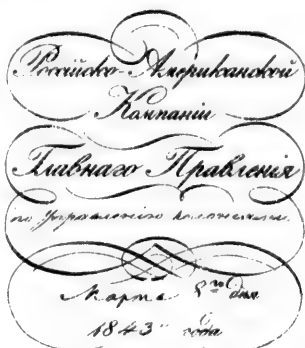 Россійско-Американской
Компаніи
Главнаго Правленія
по Управленію колоніями.
Марта 8го дня
1843 года